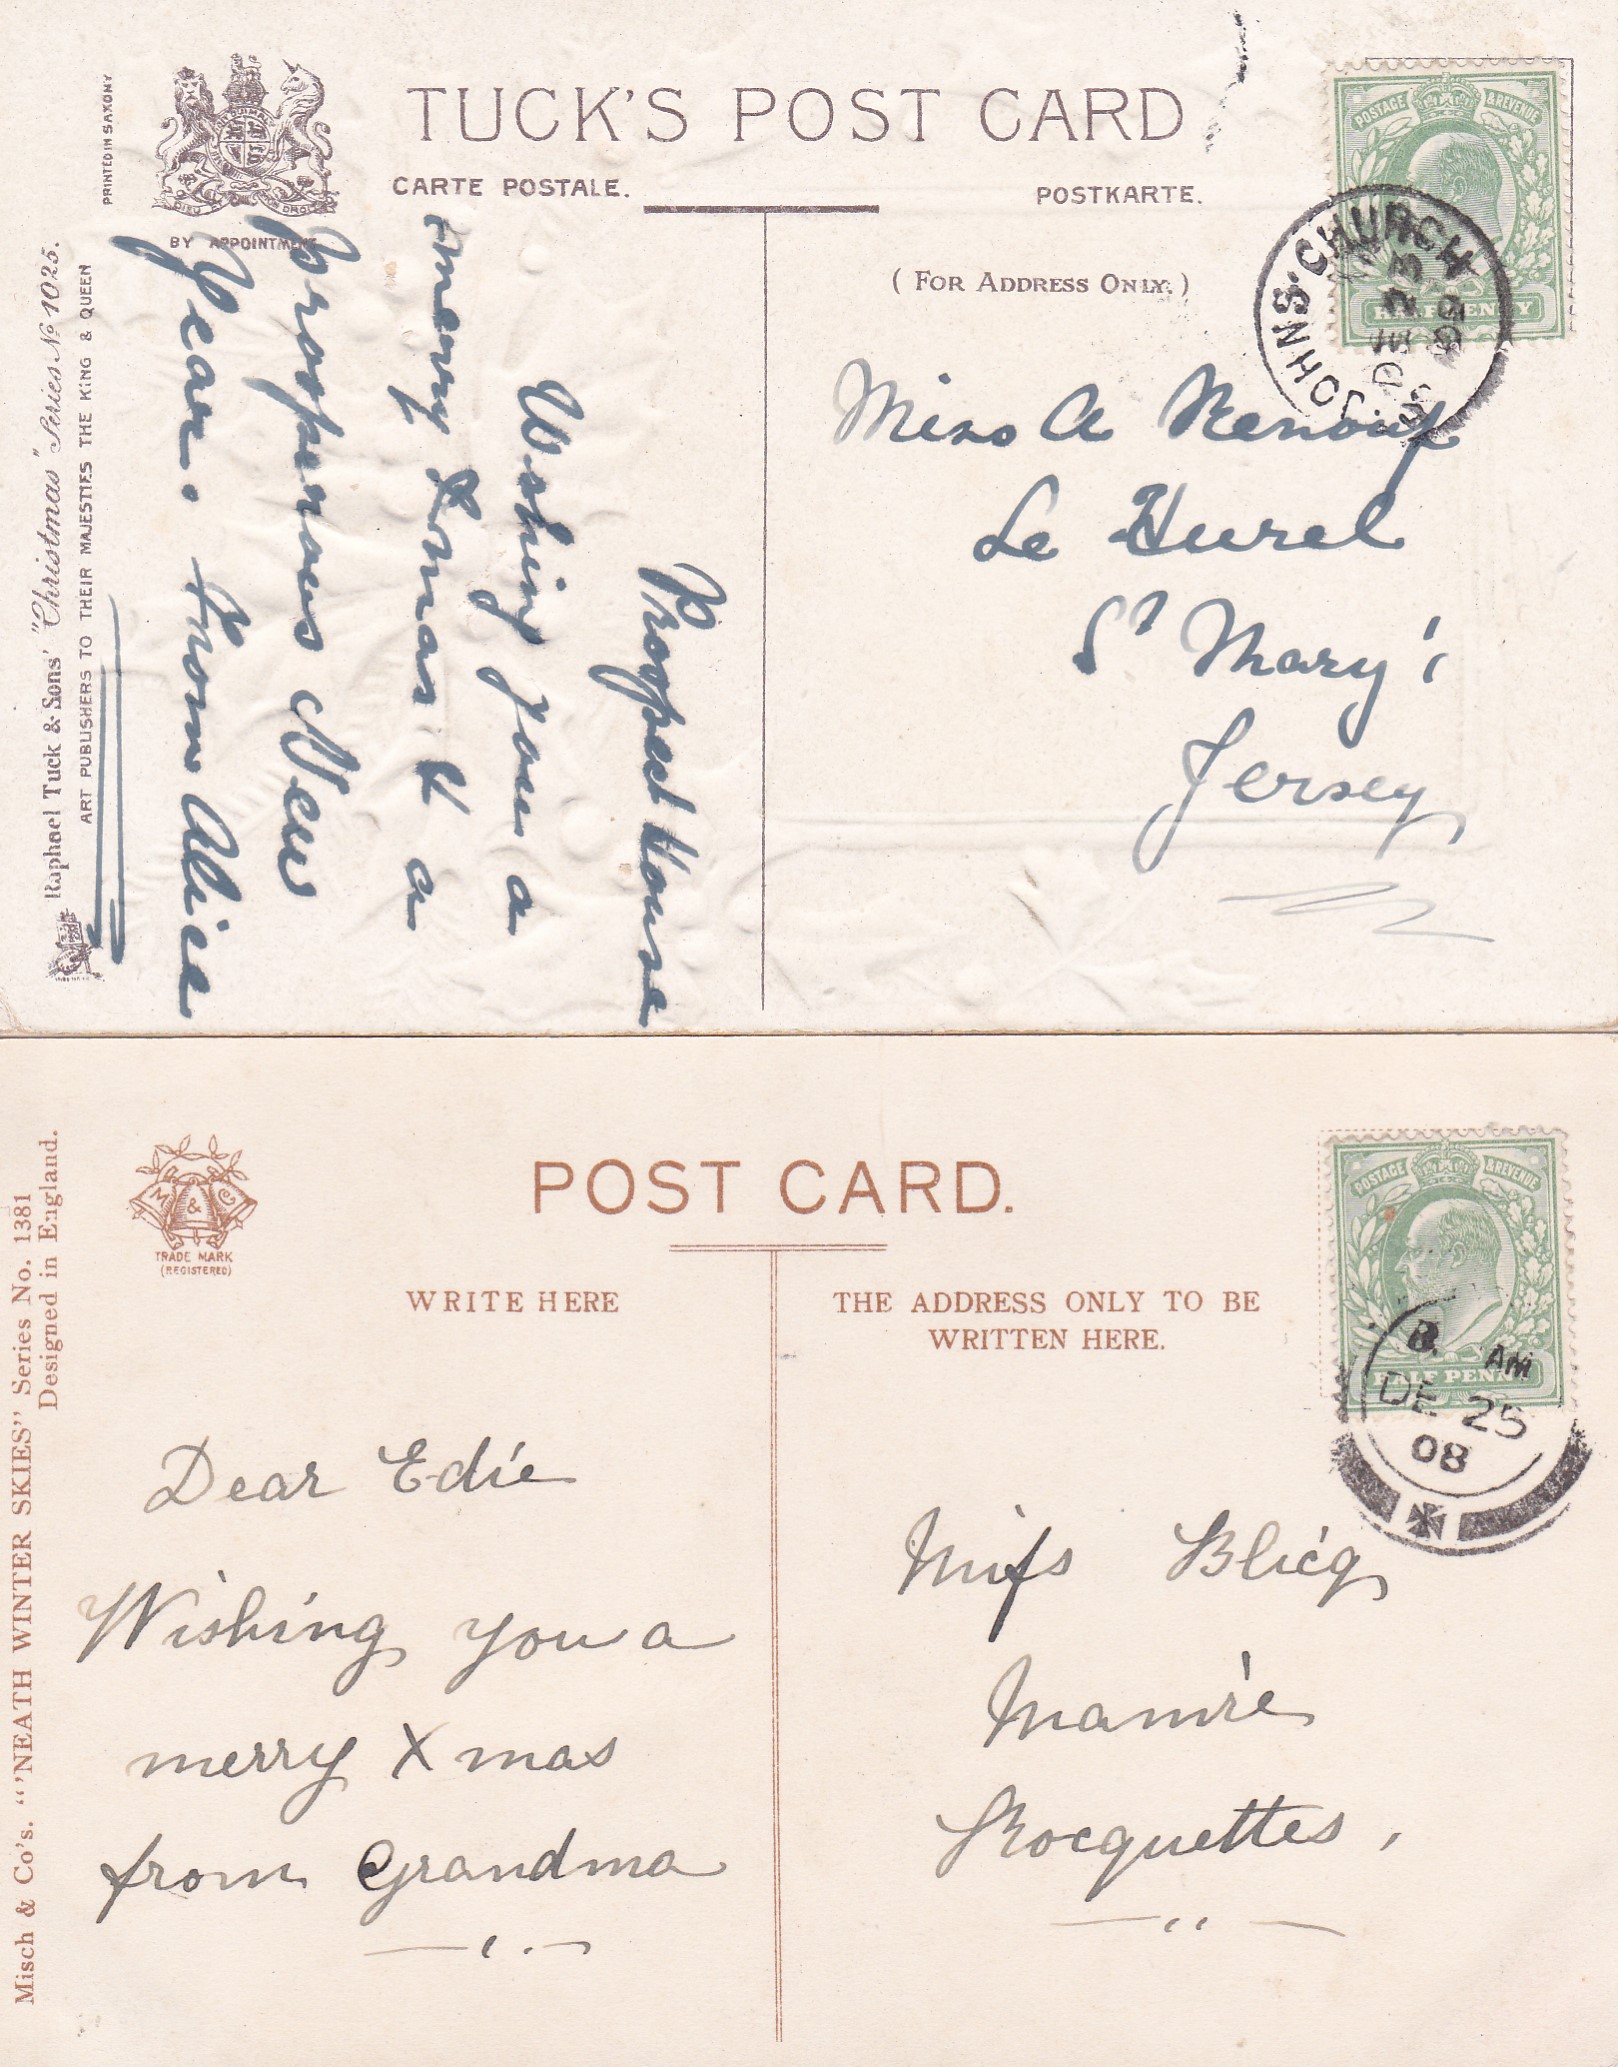 TUCK'S POST CARD
CARTE POSTALE.
POSTKARTE.
(FOR ADDRESS ONLY.)
BY APPOINTMENT
DIEU DROIT
PRINTED IN SAXONY
Raphael Tuck & Sons' "Christmas" Series No 1025.
ART PUBLISHERS TO THEIR MAJESTIES THE KING & QUEEN
POSTAGE & REVENUE
HALFPENNY
JOHNS-CHURCH
DE 23
Prospect House
Wishing you a
merry Xmas & a
prosperous New
Year. from Alice
Miss A Renouf
Le Hurel
St Mary's
Jersey
POST CARD.
M & C
TRADE MARK
(REGISTERED)
WRITE HERE
THE ADDRESS ONLY TO BE
WRITTEN HERE.
Misch & Co's. "'NEATH WINTER SKIES" Series No. 1381
Designed in England.
POSTAGE & REVENUE
HALF PENNY
B. AM
DE 25
08
Dear Edie
Wishing you a
merry Xmas
from Grandma
Miss Blicq
Rocquettes,